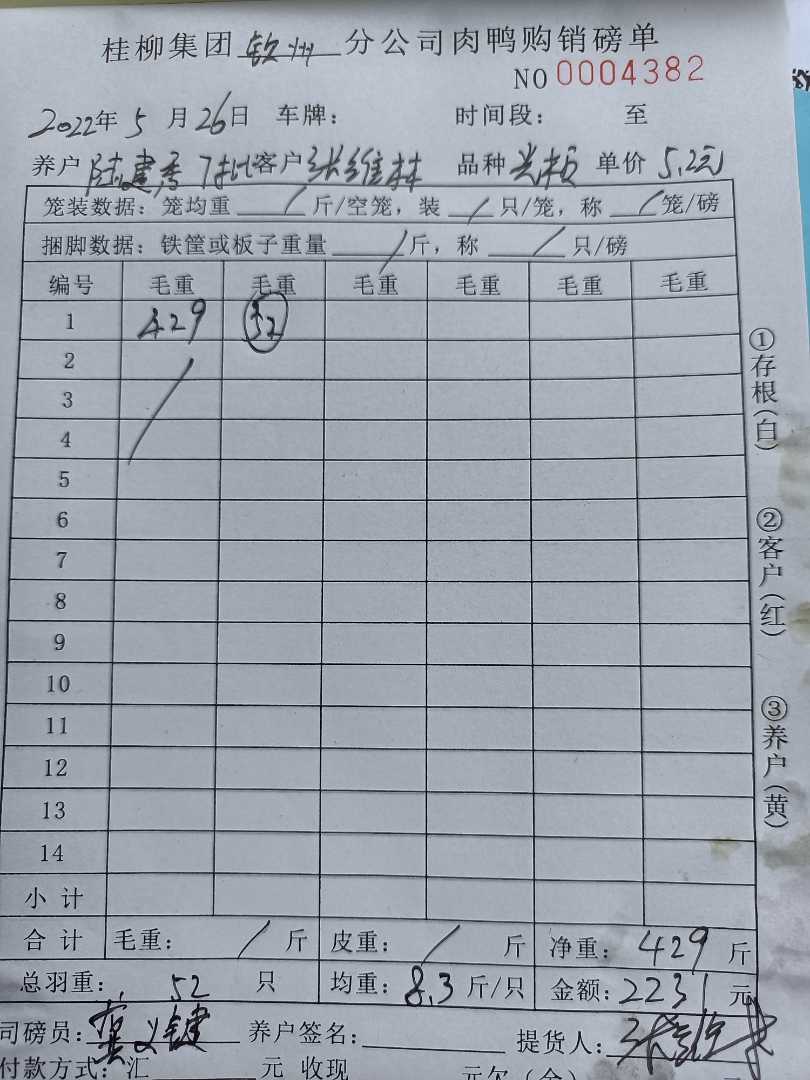 桂柳集团 钦州 分公司肉鸭购销磅单
NO 0004382
2022年 5 月 26日 车牌: 时间段: 至
养户 陆建秀 7批 客户 张维林 品种 单价 5.2元
笼装数据: 笼均重 / 斤/空笼, 装 / 只/笼, 称 / 笼/磅
捆脚数据: 铁筐或板子重量 / 斤, 称 / 只/磅
编号 毛重 毛重 毛重 毛重 毛重 毛重
1 429 52
2
3
4
5
6
7
8
9
10
11
12
13
14
小 计
合 计 毛重: / 斤 皮重: / 斤 净重: 429 斤
总羽重: 52 只 均重: 8.3 斤/只 金额: 2231 元
司磅员: 养户签名: 提货人:
付款方式: 汇 元 收现 元欠(余)
①存根(白)
②客户(红)
③养户(黄)